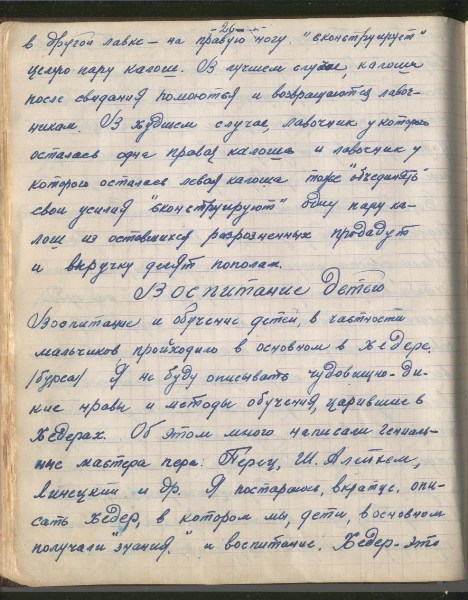 -26-
в другой лавке - на правую ногу. "вконструирует"
целую пару калош. В лучшем случае, калоши
после свидания помоются и возвращаются лавоч-
никам. В худшем случае, лавочник у которого
осталась одна правая калоша и лавочник у
которого осталась левая калоша тоже "объединять"
свои усилия "вконструируют" одну пару ка-
лош из оставшихся разрозненных продадут
и выручку делят пополам.
Воспитание детей
Воспитание и обучение детей, в частности
мальчиков, проиходило в основном в хедере.
/бурса/ Я не буду описывать чудовищно-ди-
кие нравы и методы обучения, царившие в
Хедерах. Об этом много написали гениаль-
ные мастера пера: Перец, Ш. Алейхем,
Линецкий и др. Я постараюсь, вкратце, опи-
сать Хедер, в котором мы, дети, в основном
получали "знания." и воспитание. Хедер-это